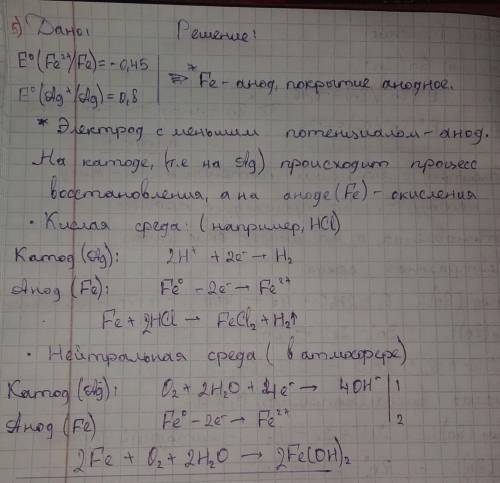 5) Дано: Решение:
E⁰(Fe²⁺/Fe)=-0,45
⇒ *Fe-анод, покрытие анодное.
E⁰(Ag⁺/Ag)=0,8
* Электрод с меньшим потенциалом-анод.
На катоде, (т.е на Ag) происходит процесс
восстановления, а на аноде (Fe)-окисления
• Кислая среда: (например, HCl)
Катод (Ag): 2H⁺ + 2e⁻ → H₂
Анод (Fe): Fe⁰ - 2e⁻ → Fe²⁺
Fe + 2HCl → FeCl₂ + H₂↑
• Нейтральная среда (в атмосфере)
Катод (Ag): O₂ + 2H₂O + 4e⁻ → 4OH⁻ | 1
Анод (Fe) Fe⁰ - 2e⁻ → Fe²⁺ | 2
2Fe + O₂ + 2H₂O → 2Fe(OH)₂